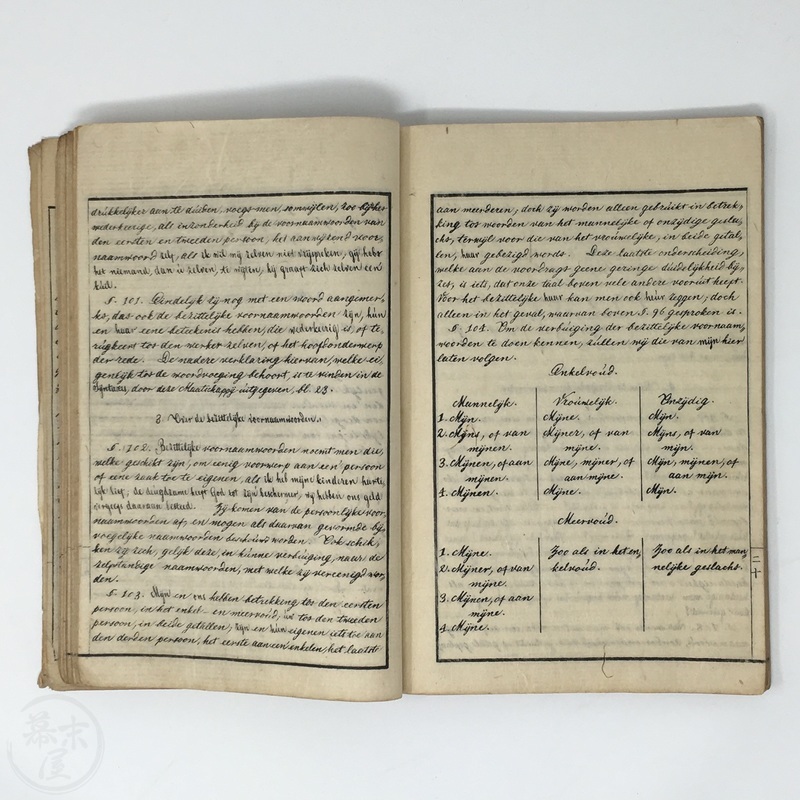 drukkelijker aan te duiden, voegt men, somwijlen, zoo bij het
wederkeerige, als inzonderheid bij de voornaamwoorden van
den eersten en tweeden persoon, het aanwijzend voor,
naamwoord zelf, als ik wil mij zelven niet vrijspreken, gij hebt
het niemand, dan u zelven, te wijten, hij graaft zich zelven een
kuil.
§. 101. Eindelijk zij nog met een woord aangemer,
kt, dat ook de bezittelijke voornaamwoorden zijn, hun
en haar eene beteekenis hebben, die wederkeerig is, of te,
rugkeert tot den werker zelven, of het hoofdonderwerp
der rede. De nadere verklaring hiervan, welke ei,
genlijk tot de woordvoeging behoort, is te vinden in de
Syntaxis, door deze Maatschappij uitgegeven, bl. 23.
3. Over de bezittelijke voornaamwoorden.
§. 102. Bezittelijke voornaamwoorden noemt men die,
welke geschikt zijn, om eenig voorwerp aan een persoon
of eene zaak toe te eigenen, als ik heb mijn kinderen harte,
lijk lief, de deugdzame heeft God tot zijn beschermer, wij hebben ons geld
vergeefs daaraan besteed. Zij komen van de persoonlijke voor,
naamwoorden af, en mogen als daarvan gevormde bij,
voegelijke naamwoorden beschouwd worden. Ook schik,
ken zij zich, gelijk deze, in hunne verbuiging, naar de
zelfstandige naamwoorden, met welke zij vereenigd wor,
den.
§. 103. Mijn en ons hebben betrekking tot den eersten
persoon, in het enkel- en meervoud, uw tot den tweeden
persoon, in beide getallen, zijn en hun eigenen iets toe aan
den derden persoon, het eerste aan een enkelen, het laatste
aan meerderen, doch zij worden alleen gebruikt in betrek,
king tot woorden van het mannelijke of onzijdige geslac,
ht, terwijl voor die van het vrouwelijke, in beide getal,
len, haar gebezigd wordt. Deze laatste onderscheiding,
welke aan de voordragt geene geringe duidelijkheid bij,
zet, is iets, dat onze taal boven vele andere vooruit heeft.
Voor het bezittelijke haar kan men ook heur zeggen, doch
alleen in het geval, waarvan boven §. 96 gesproken is.
§. 104. Om de verbuiging der bezittelijke voornaam,
woorden te doen kennen, zullen wij die van mijn hier
laten volgen.
Enkelvoud.
Mannelijk. Vrouwelijk. Onzijdig.
1. Mijn. Mijne. Mijn.
2. Mijns, of van Mijner, of van Mijns, of van
mijnen. mijne. mijn.
3. Mijnen, of aan Mijne, mijner, of Mijn, mijnen, of
mijnen. aan mijne. aan mijn.
4. Mijnen. Mijne. Mijn.
Meervoud.
1. Mijne. Zoo als in het en, Zoo als in het man,
2. Mijner, of van kelvoud. nelijke geslacht.
mijne.
3. Mijnen, of aan
mijne.
4. Mijne.
二十
幕末屋